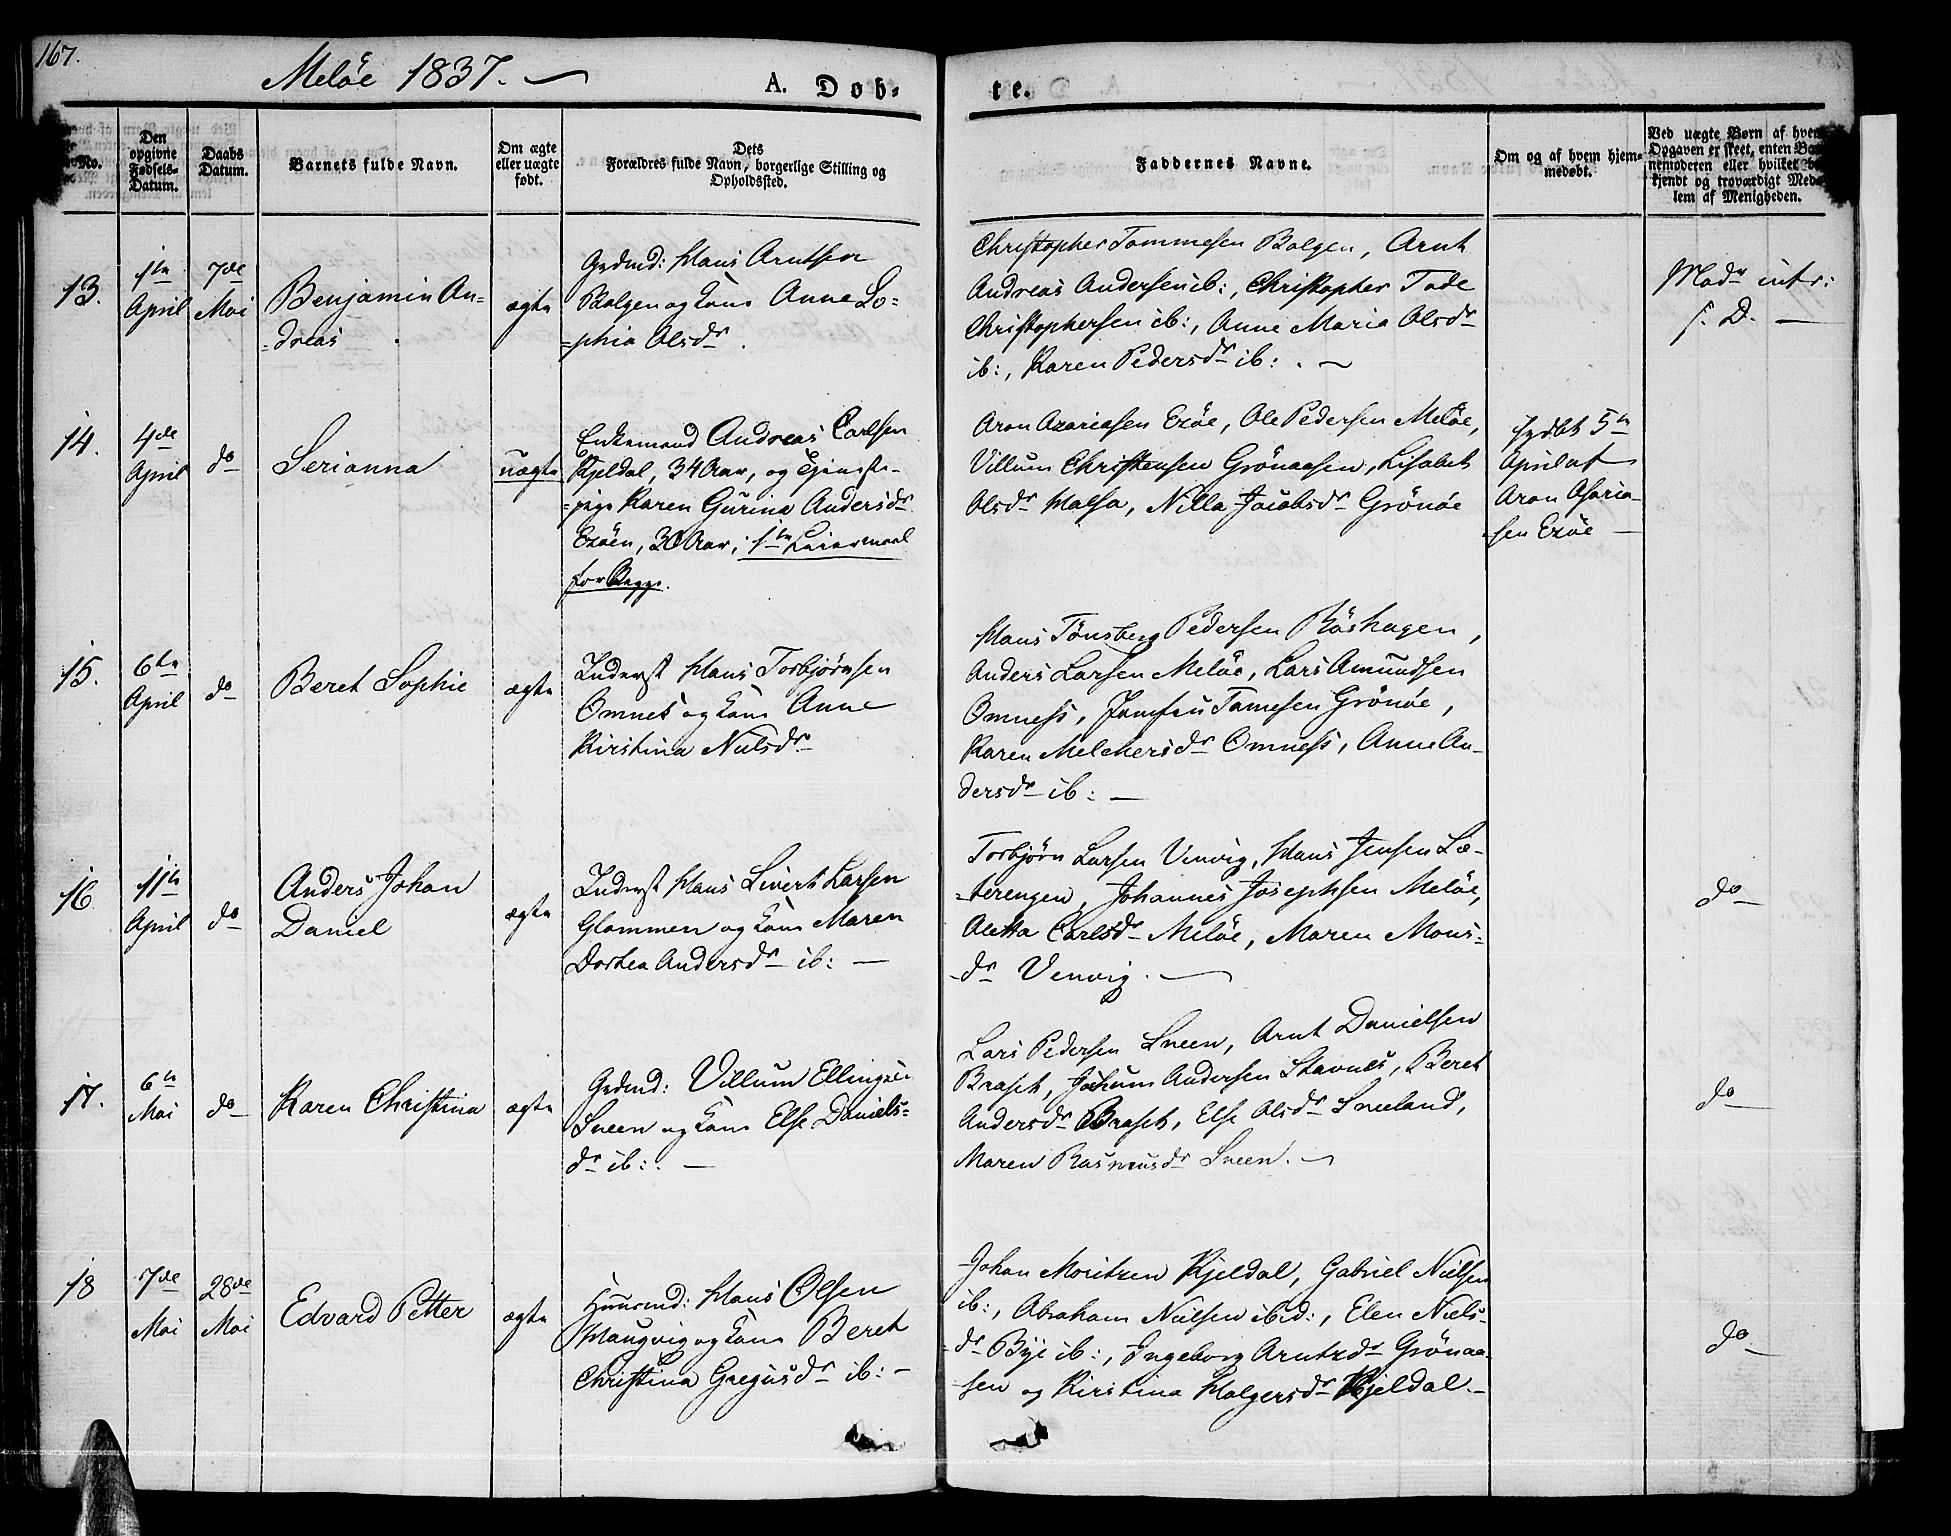 167.
Meløe 1837. —
A. Døb-
te.
No.
Den opgivne Fødsels-Datum.
Daabs Datum.
Barnets fulde Navn.
Om ægte eller uægte født.
Dets Forældres fulde Navn, borgerlige Stilling og Opholdssted.
Faddernes Navne.
Om og af hvem hjemmedøbt.
Ved uægte Børn af hvem Opgaven er skeet, enten Barnemoderen eller hvilket bekjendt og troværdigt Medlem af Menigheden.
13.
1ste
April
7de
Mai
Benjamin An-
dreas
ægte
Grdmd: Hans Arntsen
Bolgen og Kone Anne So-
phia Olsdr.
Christopher Tommesen Bolgen, Arnt
Andreas Andersen ib:, Christopher Tode
Christophersen ib:, Anne Maria Olsdr
ib:, Karen Pedersdr ib:. —
Modr intr:
s. D. —
14.
4de
April
do
Serianna
uægte
Enkemand Andreas Carlsen
Kjeldal, 34 Aar, og Tjeneste-
pige Karen Gurina Andersdr
Exöen, 30 Aar, 1ste Leiermaal
for Begge.
Aron Azariasen Exöe, Ole Pedersen Melöe,
Villum Christensen Grönaasen, Lisabet
Olsdr Halsa, Nilla Jacobsdr Grönöe
hjdbt 5te
April af
Aron Asaria-
sen Exöe
15.
6te
April
do
Beret Sophie
ægte
Inderst Hans Torbjörnsen
Omnes og Kone Anne
Kirstina Nielsdr
Hans Tönsberg Pedersen Röshagen,
Anders Larsen Melöe, Lars Amundsen
Omness, Tamesen Grönöe,
Karen Melchersdr Omness, Anne An-
dersdr ib: —
16
11te
April
do
Anders Johan
Daniel
ægte
Inderst Hans Sivert Larsen
Glommen og Kone Maren
Dorthea Andersdr ib: —
Torbjörn Larsen Venvig, Hans Jensen Sæ-
terengen, Johannes Josephsen Melöe,
Aletta Carlsdr Melöe, Maren Mons-
dr Venvig. —
do
17.
6te
Mai
do
Karen Christina
ægte
Grdmd: Villum Ellingsen
Sneen og Kone Else Daniels-
dr ib:. —
Lars Pedersen Sneen, Arnt Danielsen
Braset, Jochum Andersen Stavnes, Beret
Andersdr Braset, Else Olsdr Sneeland,
Maren Rasmusdr Sneen. —
do
18
7de
Mai
28de
Mai
Edvard Petter
ægte
Huusmd: Hans Olsen
Haugvig og Kone Beret
Christina Gregusdr ib: —
Johan Moritzen Kjeldal, Gabriel Nielsen
ib:, Abraham Nielsen ibid:, Elen Niels-
dr Bye ib:, Ingeborg Arntzdr Grönaa-
sen og Kirstina Holgersdr Kjeldal. —
do